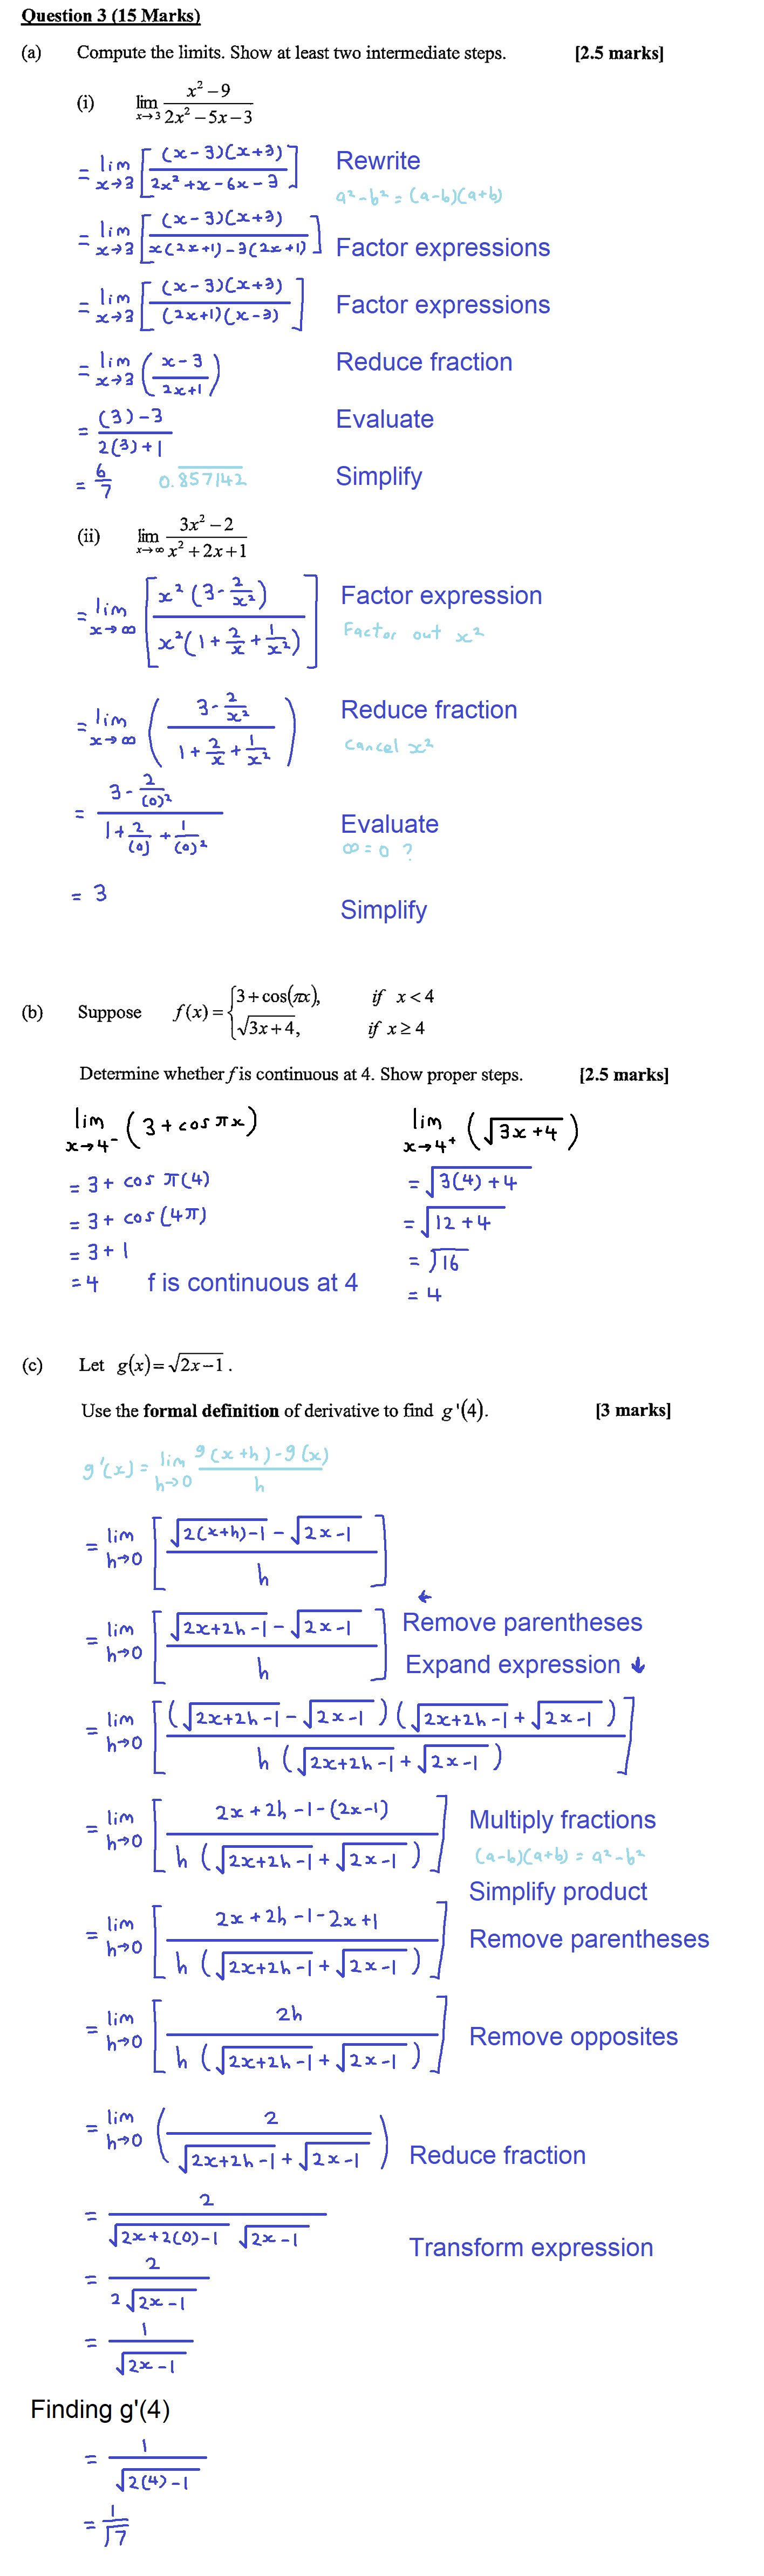 Question 3 (15 Marks)
(a) Compute the limits. Show at least two intermediate steps. [2.5 marks]
(i) lim x→3 (x² − 9)/(2x² − 5x − 3)
= lim x→3 [(x-3)(x+3)/(2x²+x-6x-3)] Rewrite
a²-b² = (a-b)(a+b)
= lim x→3 [(x-3)(x+3)/(x(2x+1)-3(2x+1))] Factor expressions
= lim x→3 [(x-3)(x+3)/((2x+1)(x-3))] Factor expressions
= lim x→3 ((x-3)/(2x+1)) Reduce fraction
= ((3)-3)/(2(3)+1) Evaluate
= 6/7 0.857142 Simplify
(ii) lim x→∞ (3x² − 2)/(x² + 2x + 1)
= lim x→∞ [x²(3-2/x²)/(x²(1+2/x+1/x²))] Factor expression
Factor out x²
= lim x→∞ ((3-2/x²)/(1+2/x+1/x²)) Reduce fraction
cancel x²
= (3-2/(0)²)/(1+2/(0)+1/(0)²) Evaluate
∞=0 ?
= 3 Simplify
(b) Suppose f(x) = {3+cos(πx), if x < 4
√(3x+4), if x ≥ 4
Determine whether f is continuous at 4. Show proper steps. [2.5 marks]
lim x→4⁻ (3+cos πx) lim x→4⁺ (√(3x+4))
= 3+ cos π(4) = √(3(4)+4)
= 3+ cos(4π) = √(12+4)
= 3+1 = √16
= 4 f is continuous at 4 = 4
(c) Let g(x) = √(2x−1).
Use the formal definition of derivative to find g'(4). [3 marks]
g'(x) = lim h→0 (g(x+h)-g(x))/h
= lim h→0 [(√(2(x+h)-1) - √(2x-1))/h]
←
= lim h→0 [(√(2x+2h-1) - √(2x-1))/h] Remove parentheses
Expand expression ↓
= lim h→0 [(√(2x+2h-1) - √(2x-1))(√(2x+2h-1) + √(2x-1))/(h(√(2x+2h-1) + √(2x-1)))]
= lim h→0 [(2x+2h-1-(2x-1))/(h(√(2x+2h-1) + √(2x-1)))] Multiply fractions
(a-b)(a+b) = a²-b²
Simplify product
= lim h→0 [(2x+2h-1-2x+1)/(h(√(2x+2h-1) + √(2x-1)))] Remove parentheses
= lim h→0 [2h/(h(√(2x+2h-1) + √(2x-1)))] Remove opposites
= lim h→0 (2/(√(2x+2h-1) + √(2x-1))) Reduce fraction
= 2/(√(2x+2(0)-1) √(2x-1)) Transform expression
= 2/(2√(2x-1))
= 1/√(2x-1)
Finding g'(4)
= 1/√(2(4)-1)
= 1/√7